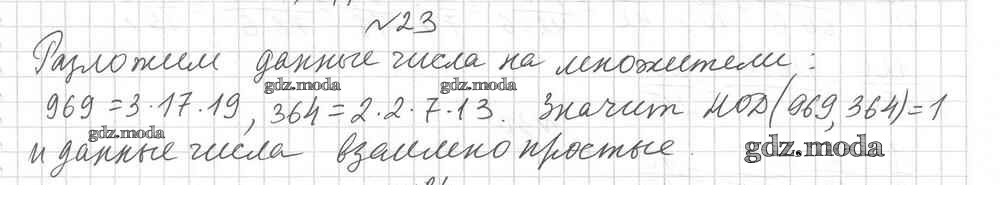 №23
Разложим данные числа на множители:
gdz.moda gdz.moda
969=3·17·19, 364=2·2·7·13. Значит НОД(969,364)=1
gdz.moda
и данные числа взаимно простые.
gdz.moda